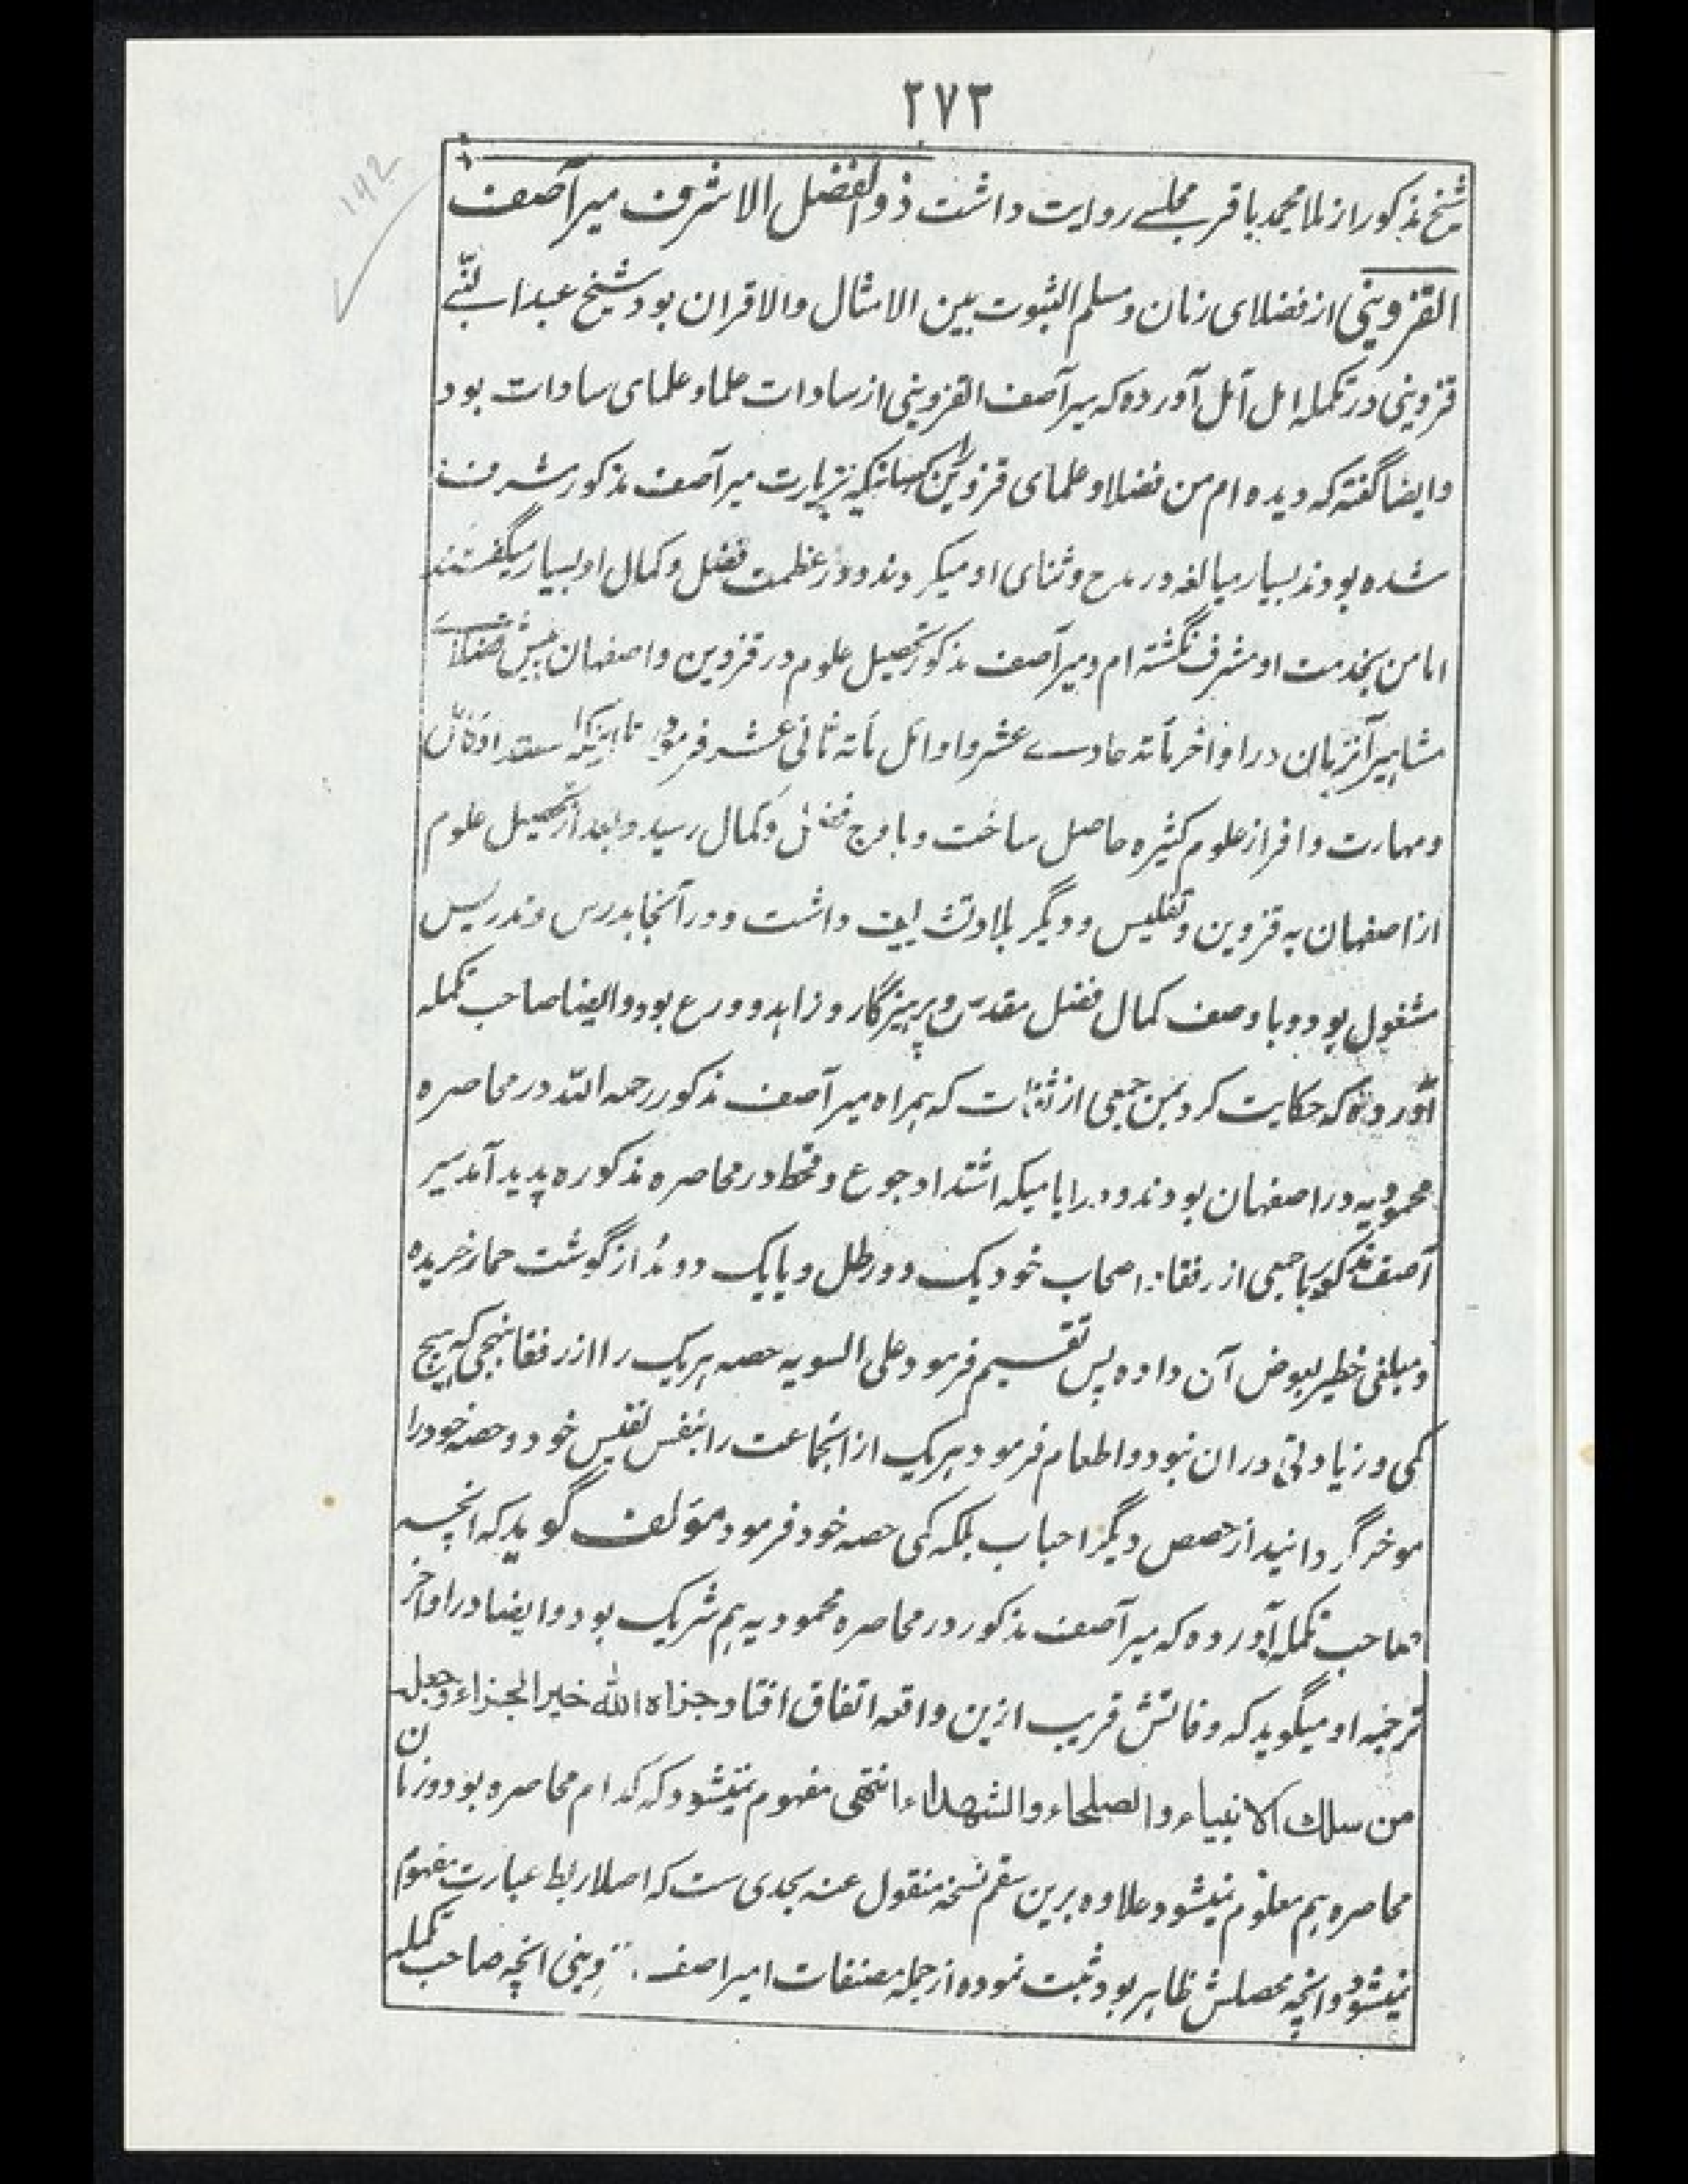 ۲۷۳
۱۹۲
شیخ مذکور از ملا محمد باقر مجلسے روایت داشت ذو الفضل الاشرف میر آصف
القزوینی از فضلای زمان و مسلم الثبوت بین الامثال والاقران بود شیخ عبد النبے
قزوینی در تکملہ امل آمل آوردہ کہ میر آصف القزوینی از سادات علما و علمای سادات بود
وایضا گفتہ کہ دیدہ ام من فضلا و علمای قزوین را کسانیکہ بزیارت میر آصف مذکور شرف
شدہ بودند بسیار مبالغہ در مدح و ثنای او میکردند و در عظمت فضل و کمال او بسیار میگفتند
اما من بخدمت او مشرف نگشتہ ام و میر آصف مذکور تحصیل علوم در قزوین و اصفہان پیش فضلاے
مشاہیر آنزمان در اواخر مأتہ حادے عشر و اوائل مأتہ ثانی عشر فرمود تا اینکہ
ومہارت وافر از علوم کثیرہ حاصل ساخت و باوج فضل و کمال رسید و بعد از تحصیل علوم
از اصفہان بہ قزوین و تفلیس و دیگر بلاد تشریف داشت و در آنجا بدرس و تدریس
مشغول بود و با وصف کمال فضل مقدس و پرہیزگار و زاہد و ورع بود و ایضا صاحب تکملہ
آوردہ کہ حکایت کرد بمن جمعی از ثقات کہ ہمراہ میر آصف مذکور رحمہ اللہ در محاصرہ
محمودیہ در اصفہان بودند و در ایامیکہ اشتداد جوع و قحط در محاصرہ مذکورہ پدید آمد میر
آصف مذکور با جمعی از رفقا و اصحاب خود یک دو رطل و یا یک دو مُد از گوشت حمار خریدہ
و مبلغی خطیر بعوض آن دادہ پس تقسیم فرمود علی السویہ حصہ ہریک را از رفقا بنہجی کہ ہیچ
کمی و زیادتی دران نبود و اطعام فرمود ہریک از انجماعت را بنفس نفیس خود و حصہ خود را
موخر گردانید از حصص دیگر احباب بلکہ کمی حصہ خود فرمود مؤلف گوید کہ انچہ
صاحب تکملہ آوردہ کہ میر آصف مذکور در محاصرہ محمودیہ ہم شریک بود و ایضا در اواخر
ترجمہ او میگوید کہ وفاتش قریب ازین واقعہ اتفاق افتاد جزاہ اللہ خیر الجزاء وجعلہ
من سلك الانبیاء والصلحاء والشهداء انتھی مفہوم نمیشود کہ کدام محاصرہ بود و زمان
محاصرہ ہم معلوم نمیشود علاوہ برین سقم نسخہ منقول عنہ بحدی ست کہ اصلا ربط عبارت مفہوم
نمیشود و انچہ محصلش ظاہر بود ثبت نمودہ از جملہ مصنفات امیر اصف قزوینی انچہ صاحب تکملہ